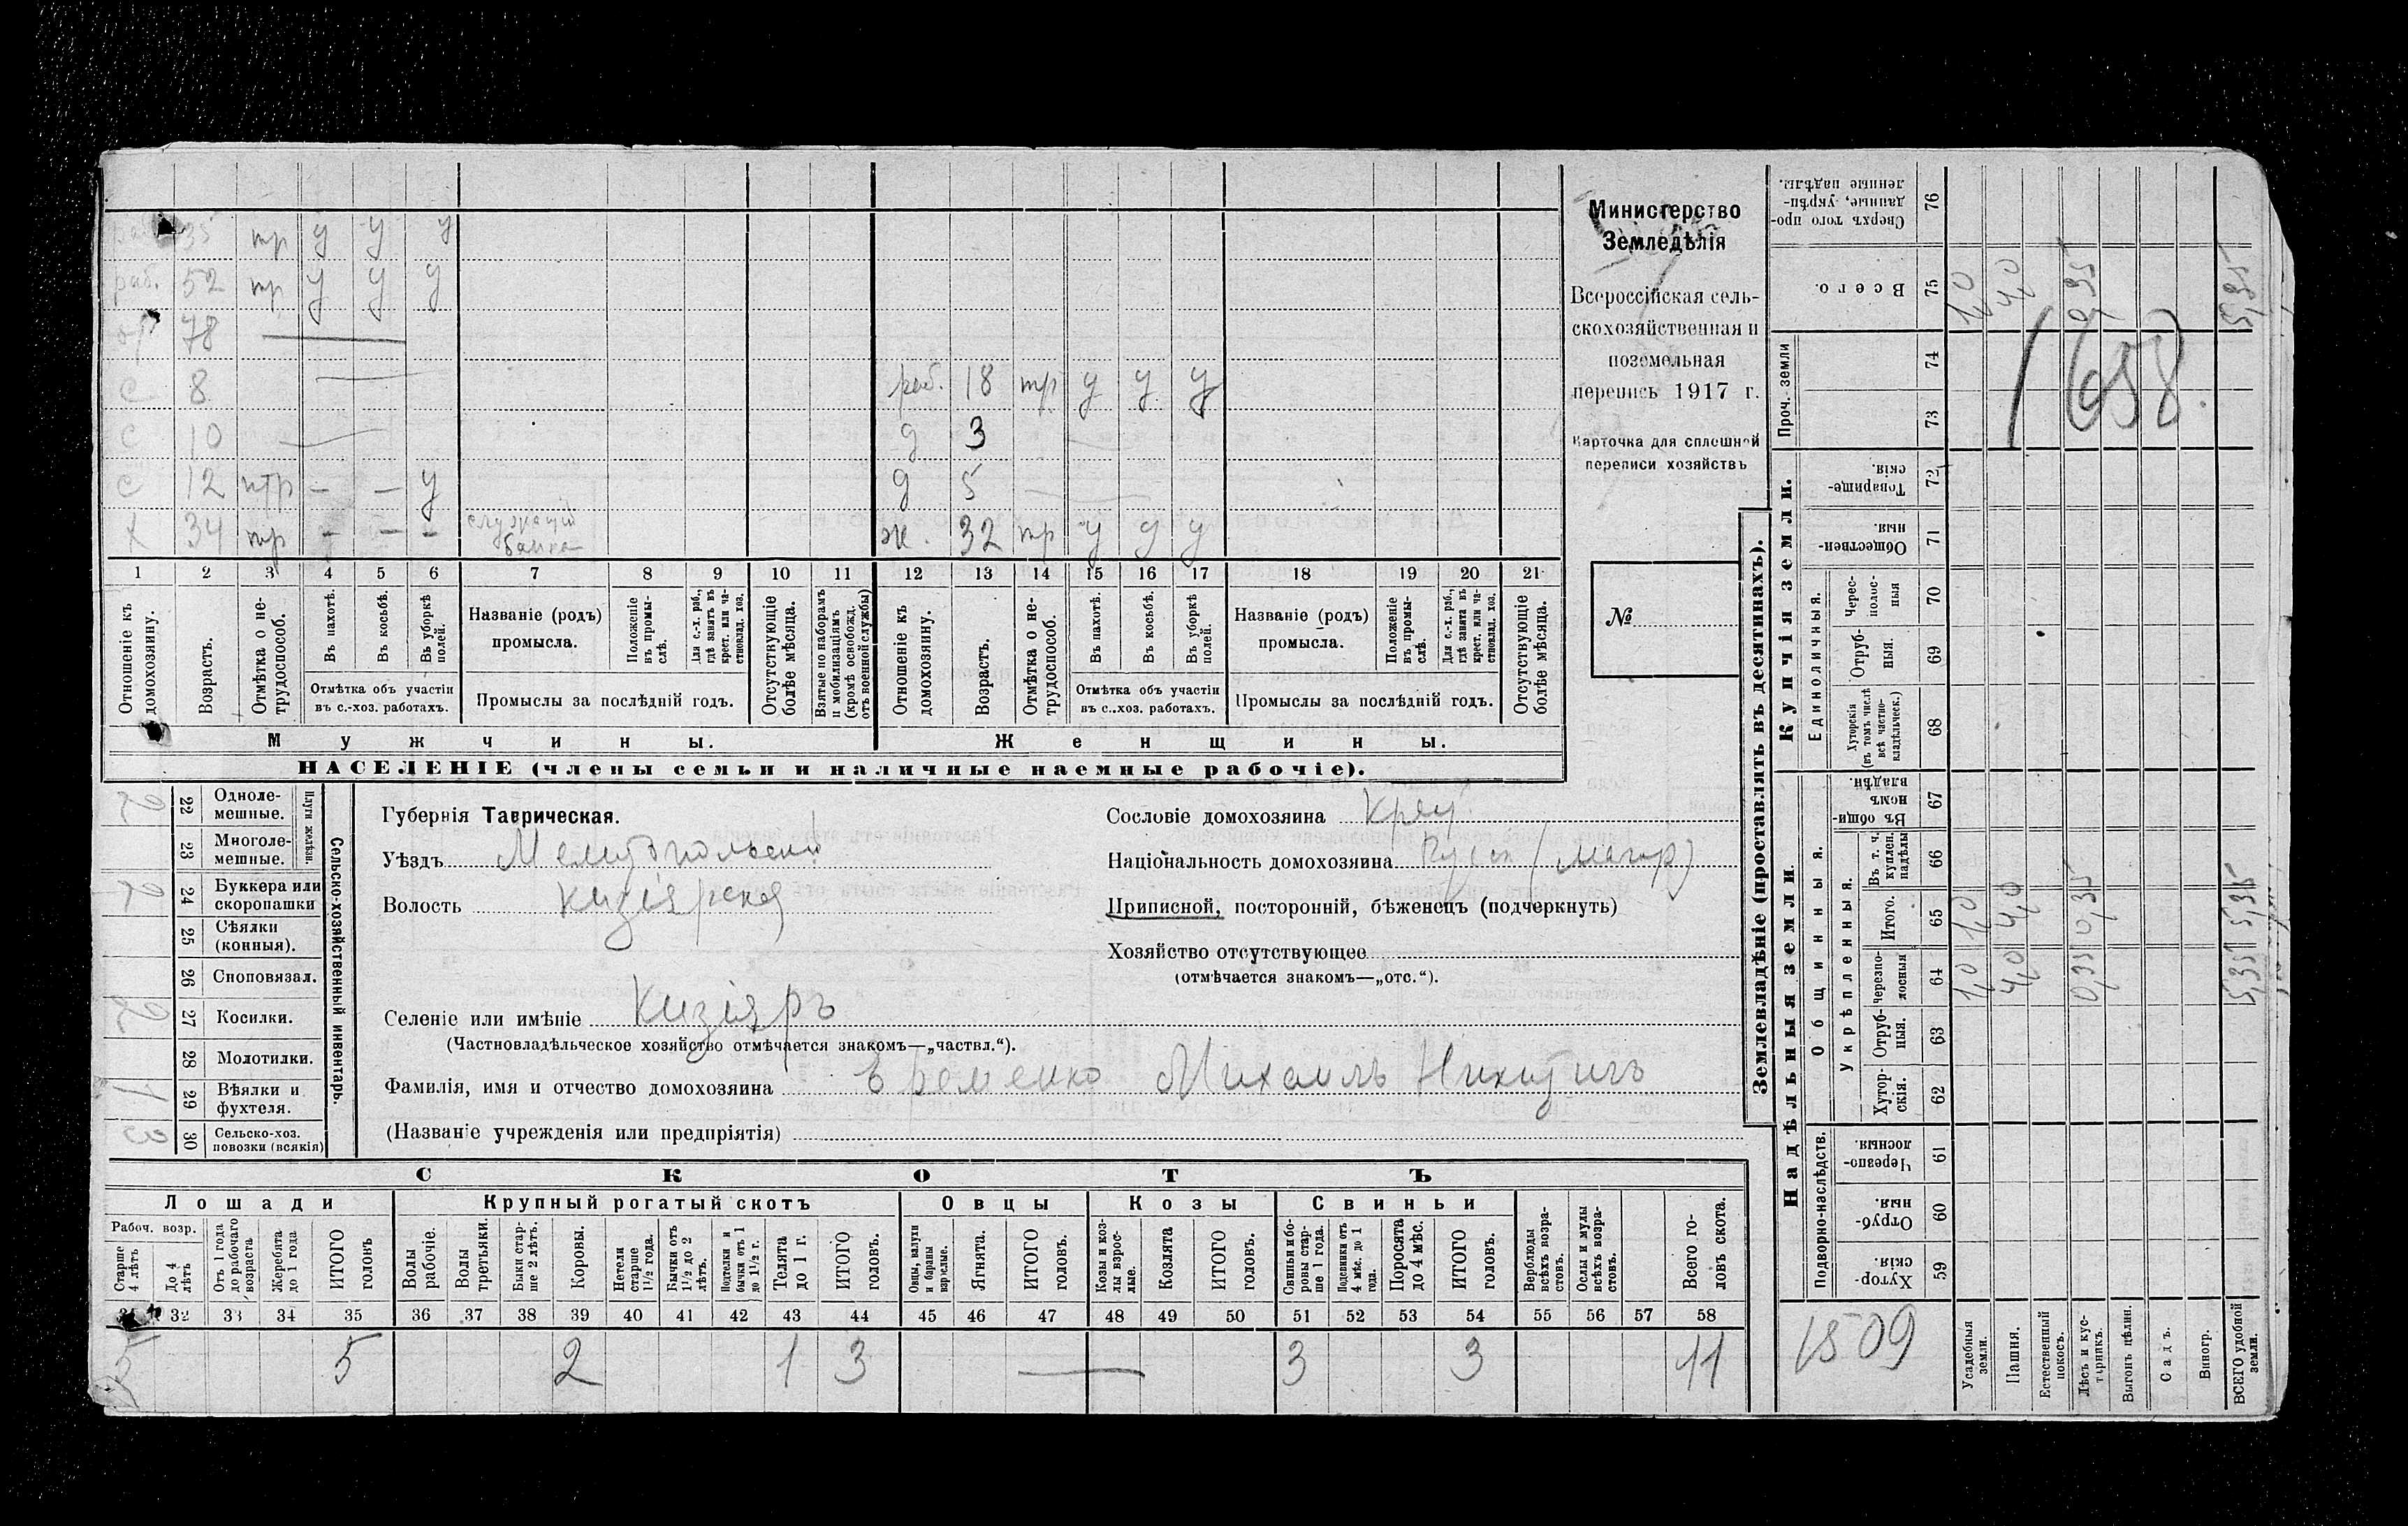 Министерство
Земледѣлія
Всероссійская сель-
скохозяйственная и
поземельная
перепись 1917 г.
Карточка для сплошной
переписи хозяйствъ
№
35 тр у у у
раб. 52 тр у у у
78
с 8
раб. 18 тр у у у
с 10
д 3
с 12 птр – – у
д 5
х 34 тр – – – служащій банка
ж. 32 тр у у у
1 2 3 4 5 6 7 8 9 10 11 12 13 14 15 16 17 18 19 20 21
Отношеніе къ домохозяину.
Возрастъ.
Отмѣтка о не-трудоспособ.
Въ пахотѣ.
Въ косьбѣ.
Въ уборкѣ полей.
Отмѣтка объ участіи въ с.-хоз. работахъ.
Названіе (родъ) промысла.
Положеніе въ промы-слѣ.
Для с.-х. раб., гдѣ занятъ въ крест. или ча-стновлад. хоз.
Промыслы за послѣдній годъ.
Отсутствующіе болѣе мѣсяца.
Взятые по наборамъ и мобилизаціямъ (кромѣ освобожд. отъ военной службы)
Отношеніе къ домохозяину.
Возрастъ.
Отмѣтка о не-трудоспособ.
Въ пахотѣ.
Въ косьбѣ.
Въ уборкѣ полей.
Отмѣтка объ участіи въ с.-хоз. работахъ.
Названіе (родъ) промысла.
Положеніе въ промы-слѣ.
Для с.-х. раб., гдѣ занята въ крест. или ча-стновлад. хоз.
Промыслы за послѣдній годъ.
Отсутствующіе болѣе мѣсяца.
Мужчины.
Женщины.
НАСЕЛЕНІЕ (члены семьи и наличные наемные рабочіе).
Сельско-хозяйственный инвентарь.
Плуги желѣзн.
22 Одноле-мешные. 2
23 Многоле-мешные.
24 Буккера или скоропашки 2
25 Сѣялки (конныя).
26 Сноповязал.
27 Косилки. 2
28 Молотилки.
29 Вѣялки и фухтеля. 1
30 Сельско-хоз. повозки (всякія) 3
Губернія Таврическая.
Уѣздъ Мелитопольскій
Волость Кизіярская
Селеніе или имѣніе Кизіяръ
(Частновладѣльческое хозяйство отмѣчается знакомъ—„частвл.“).
Фамилія, имя и отчество домохозяина Еременко Михаилъ Никитичъ
(Названіе учрежденія или предпріятія)
Сословіе домохозяина
Національность домохозяина
Приписной, посторонній, бѣженецъ (подчеркнуть)
Хозяйство отсутствующее
(отмѣчается знакомъ—„отс.“).
СКОТЪ
Лошади
Крупный рогатый скотъ
Овцы
Козы
Свиньи
Рабоч. возр.
Старше 4 лѣтъ
До 4 лѣтъ
Отъ 1 года до рабочаго возраста
Жеребята до 1 года
ИТОГО головъ
Волы рабочіе.
Волы третьяки.
Быки стар-ше 2 лѣтъ.
Коровы.
Нетели старше 1½ года.
Бычки отъ 1½ до 2 лѣтъ.
Подтелки и бычки отъ 1 до 1½ г.
Телята до 1 г.
ИТОГО головъ.
Овцы, валухи и бараны взрослые.
Ягнята.
ИТОГО головъ.
Козы и коз-лы взрос-лые.
Козлята
ИТОГО головъ.
Свиньи и бо-ровы стар-ше 1 года.
Подсвинки отъ 4 мѣс. до 1 года.
Поросята до 4 мѣс.
ИТОГО головъ.
Верблюды всѣхъ возра-стовъ.
Ослы и мулы всѣхъ возра-стовъ.
Всего го-ловъ скота.
32 33 34 35 36 37 38 39 40 41 42 43 44 45 46 47 48 49 50 51 52 53 54 55 56 57 58
5 5 2 1 3 — 3 3 11
Землевладѣніе (проставлять въ десятинахъ).
Надѣльныя земли.
Купчія земли.
Подворно-наслѣдств.
Общинныя.
Укрѣпленныя.
Единоличныя.
Проч. земли
76 Сверхъ того про-данные, укрѣп-ленные надѣлы.
75 Всего. 1,0 4,0 0,35 5,35
74
73
72 Товарище-скія.
71 Обществен-ныя.
70 Черес-полос-ныя
69 Отруб-ныя.
68 Хуторскія (въ томъ числѣ всѣ частно-владѣльческ.)
67 Въ общи-номъ владѣн.
66 Въ т. ч. куплен. надѣлы
65 Итого. 1,0 4,0 0,35 5,35
64 Черезпо-лосныя 1,0 4,0 0,35 5,35
63 Отруб-ныя.
62 Хутор-скія.
61 Черезпо-лосныя.
60 Отруб-ныя.
59 Хутор-скія.
1658
1509
Усадебныя земли.
Пашня.
Естественный покосъ.
Лѣсъ и кус-тарникъ.
Выгонъ цѣлин.
Садъ.
Виногр.
ВСЕГО удобной земли.